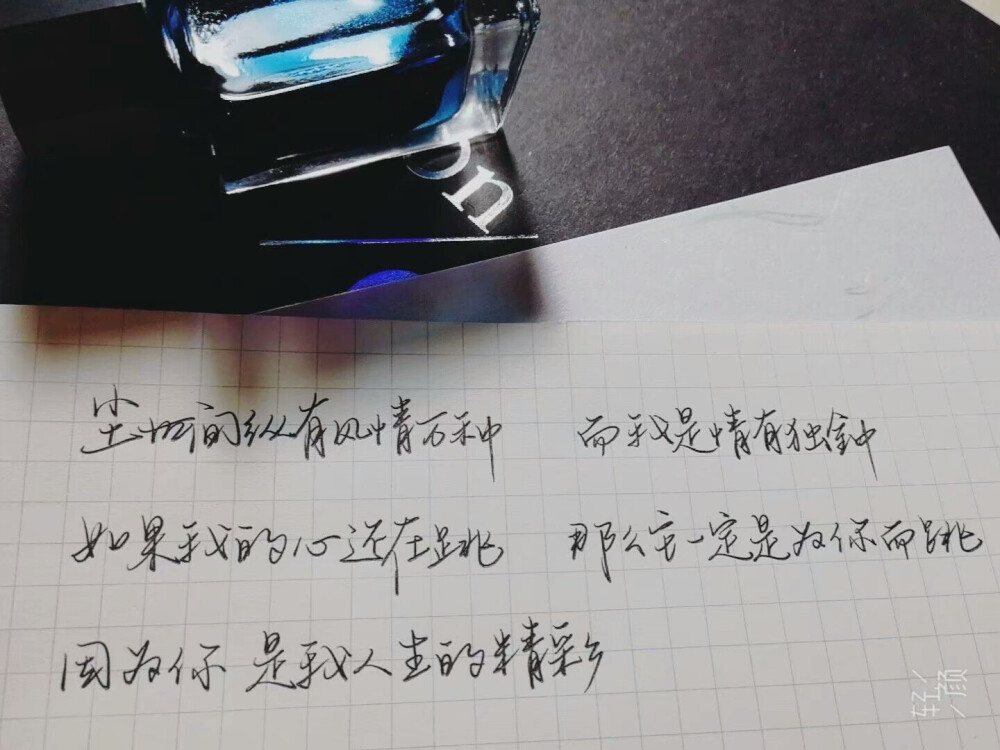 on
尘世间纵有风情万种 而我是情有独钟
如果我的心还在跳 那么它一定是为你而跳
因为你 是我人生的精彩
轻颜